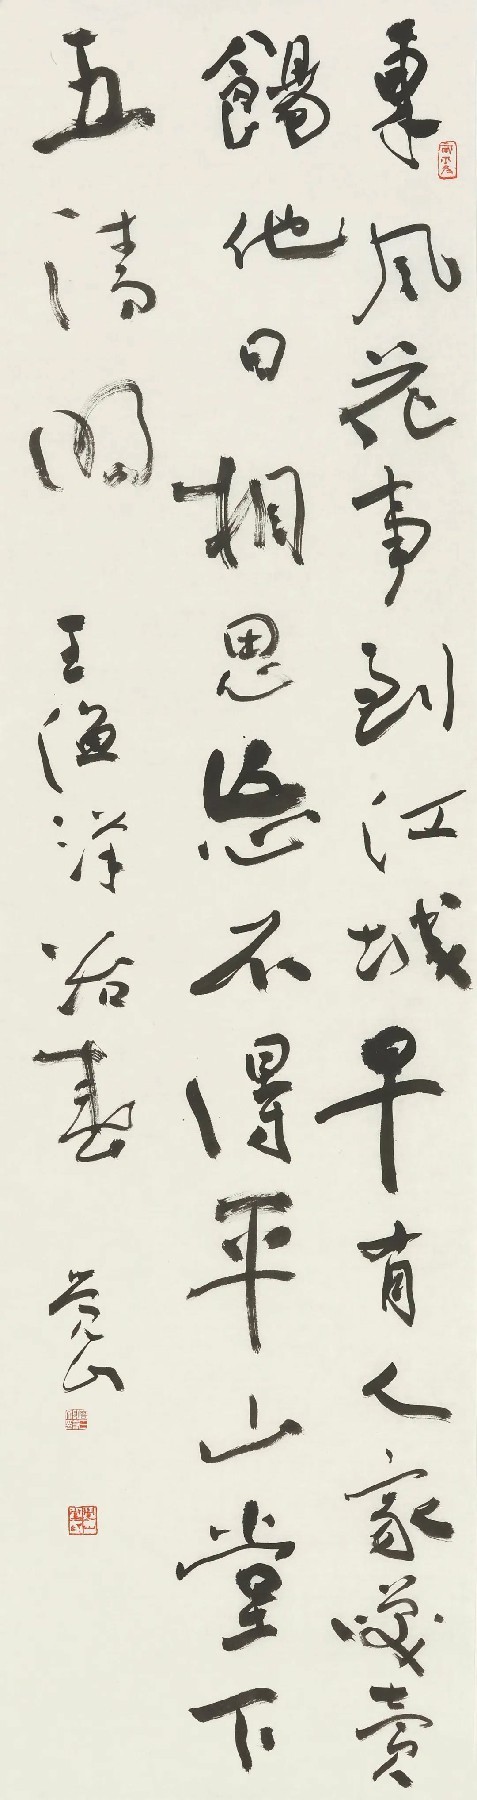 東風花事到江城早有人家喚賣
餳他日相思忘不得平山堂下
五清明 王漁洋冶春 覺山